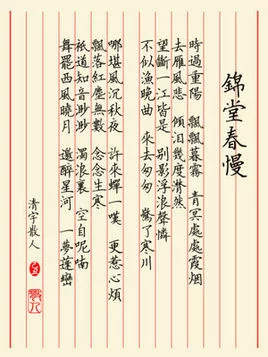 錦堂春慢
時過重陽　飄飄暮霧　青冥處處霞烟
去雁風悲　傾泪幾度潸然
望斷一江皆是　別影浮浪聲憐
不似漁晚曲　來去匆匆　驚了寒川
哪堪風沉秋夜　許來蟬一嘆　更惹心煩
飄落紅塵無數　念念生寒
祗道知音眇眇　濁浪裏　空自呢喃
舞罷西風曉月　邀醉星河　一夢蓬巒
清宇散人